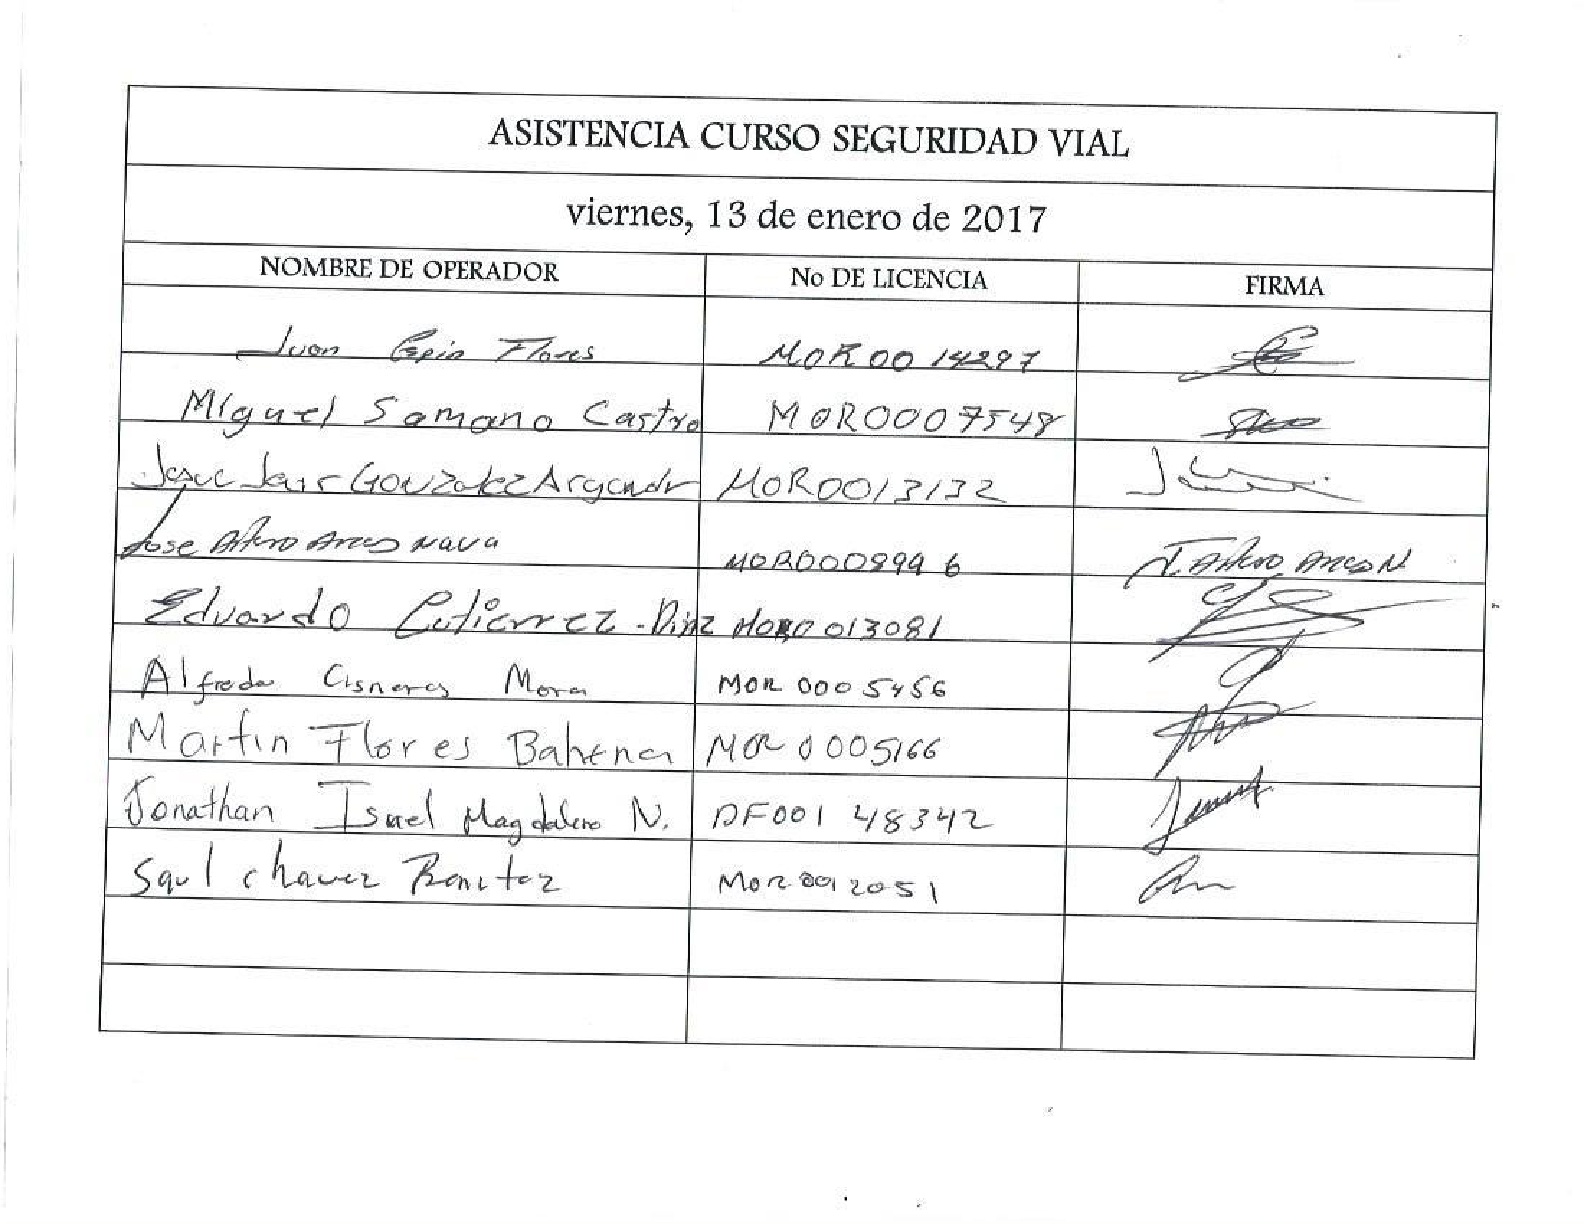 ASISTENCIA CURSO SEGURIDAD VIAL
viernes, 13 de enero de 2017
NOMBRE DE OPERADOR No DE LICENCIA FIRMA
Juan Flores MOR0014297
Miguel Samano Castro MOR0007548
Gonzalez MOR0013132
Jose Arturo Arcos Nava MOR0008996 J. Arturo Arcos N
Eduardo Gutierrez Diaz 013081
Alfredo Cisneros Mora MOR 0005456
Martin Flores Bahena MOR 0005166
Jonathan Isael Magdaleno N. DF001 48342
Saul chavez Benitez MOR0012051